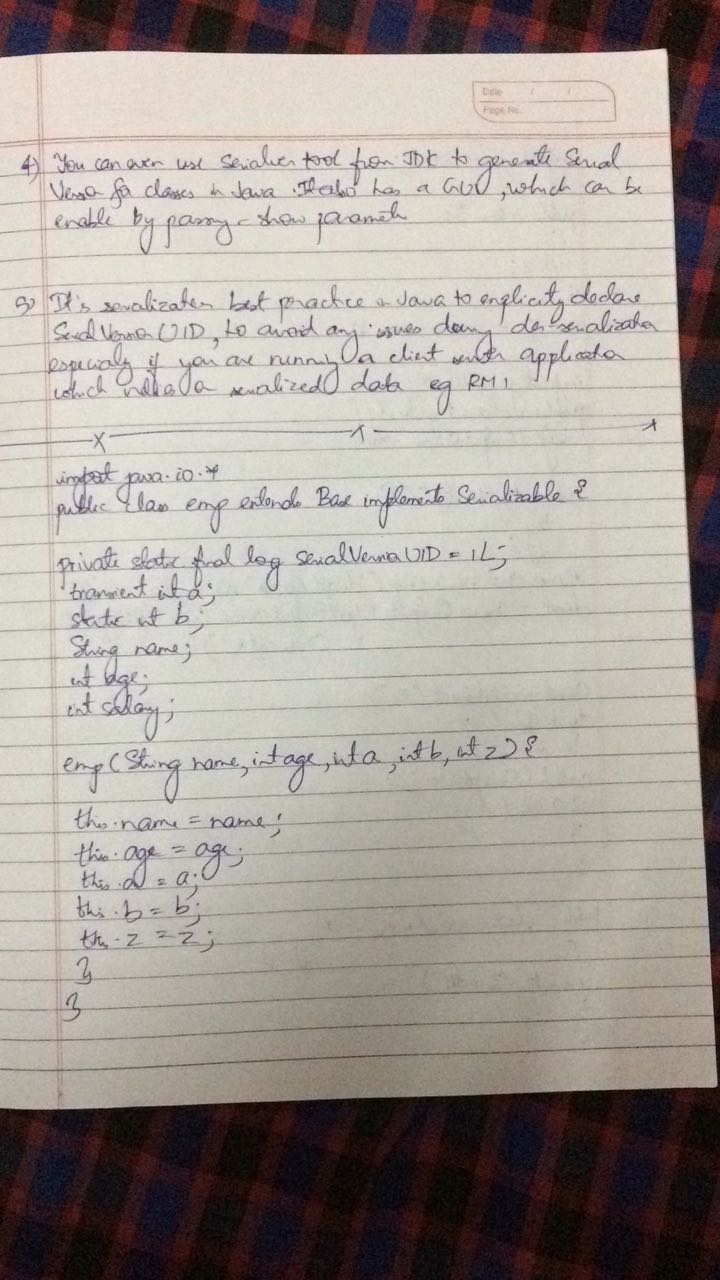 Date / /
Page No.
4) You can even use Serialver tool from JDK to generate Serial
Version for classes in Java. It also has a GUI, which can be
enable by passing - show parameter
5) It's serialization best practice in Java to explicitly declare
Serial Version UID, to avoid any issues during de-serialization
especially if you are running a client server application
which a serialized data eg RMI
import java.io.*
public class emp extends Base implements Serializable {
private static final long serialVersionUID = 1L;
transient int a;
static int b;
String name;
int age;
int salary;
emp (String name, int age, int a, int b, int z) {
this.name = name;
this.age = age;
this.a = a;
this.b = b;
this.z = z;
}
}